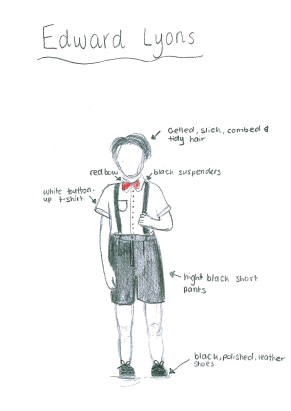 Edward Lyons
Gelled, slick, combed &
tidy hair
red bow
black suspenders
white button-
up t-shirt
hight black short
pants
black, polished, leather
shoes